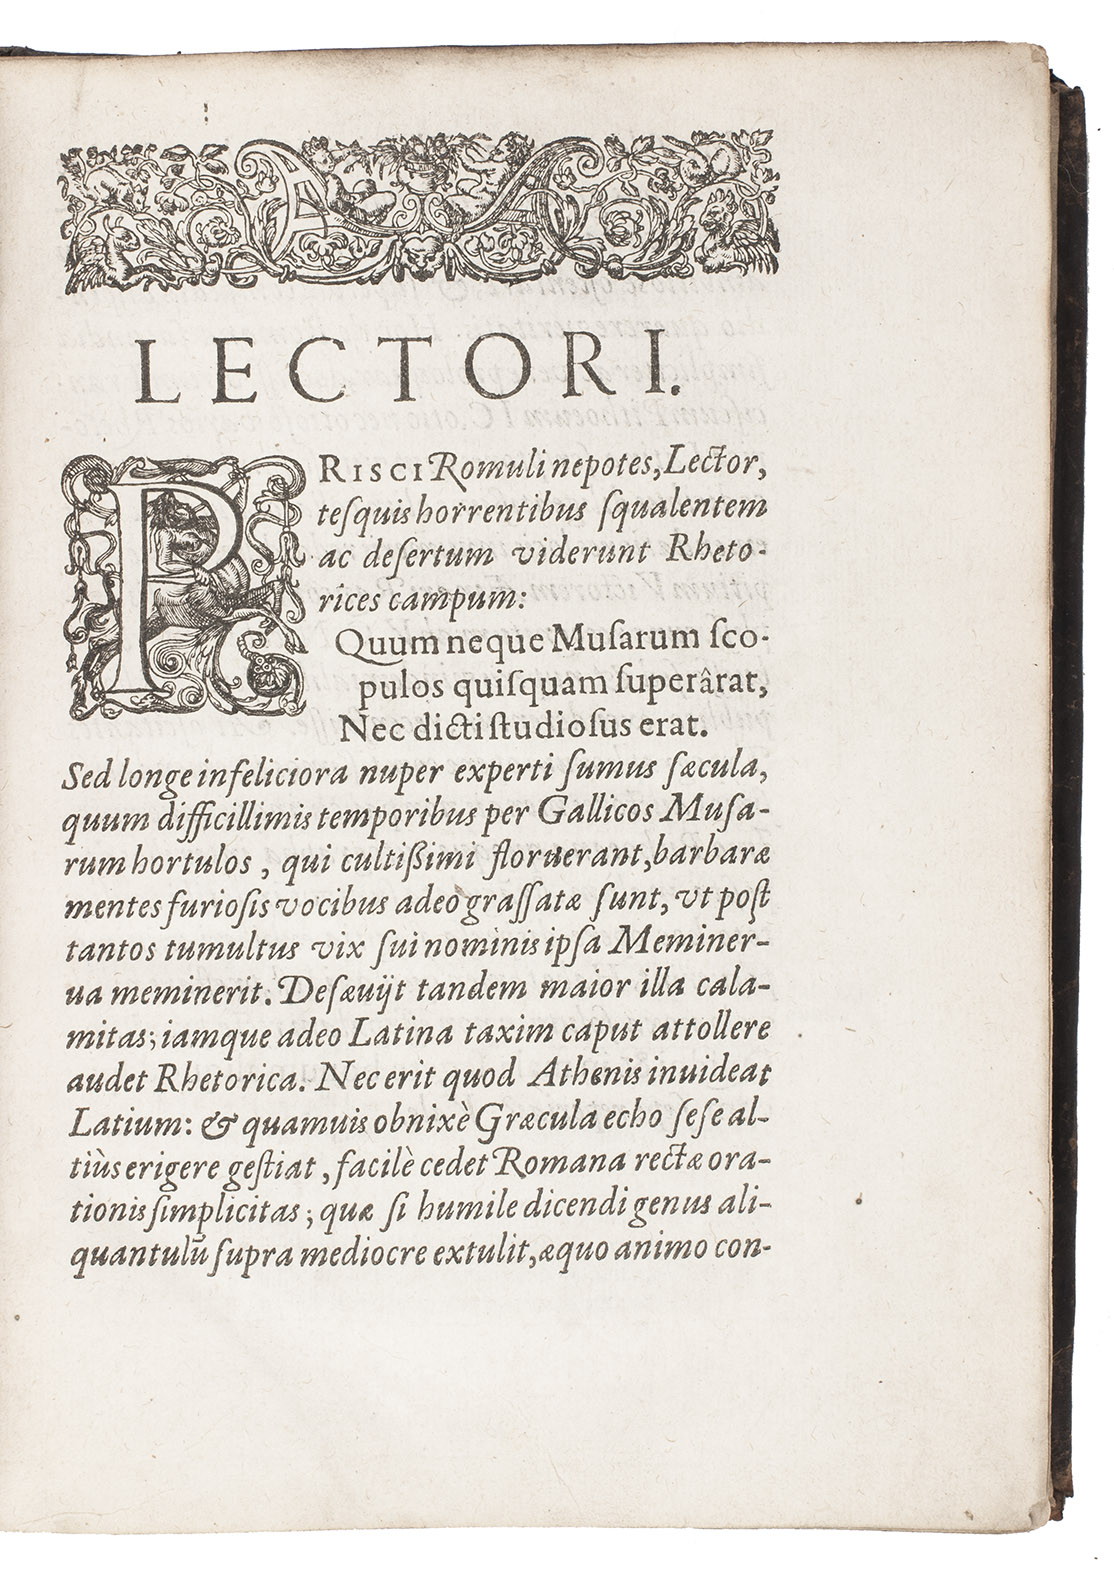 LECTORI.
PRISCI Romuli nepotes, Lector,
teſquis horrentibus ſqualentem
ac deſertum viderunt Rheto-
rices campum:
Quum neque Muſarum ſco-
pulos quiſquam ſuperârat,
Nec dicti ſtudioſus erat.
Sed longe infeliciora nuper experti ſumus ſæcula,
quum difficillimis temporibus per Gallicos Muſa-
rum hortulos, qui cultißimi floruerant, barbaræ
mentes furioſis vocibus adeo graſſatæ ſunt, vt poſt
tantos tumultus vix ſui nominis ipſa Meminer-
ua meminerit. Deſæuijt tandem maior illa cala-
mitas; iamque adeo Latina taxim caput attollere
audet Rhetorica. Nec erit quod Athenis inuideat
Latium: & quamuis obnixè Græcula echo ſeſe al-
tiùs erigere geſtiat, facilè cedet Romana rectæ ora-
tionis ſimplicitas; quæ ſi humile dicendi genus ali-
quantulū ſupra mediocre extulit, æquo animo con-